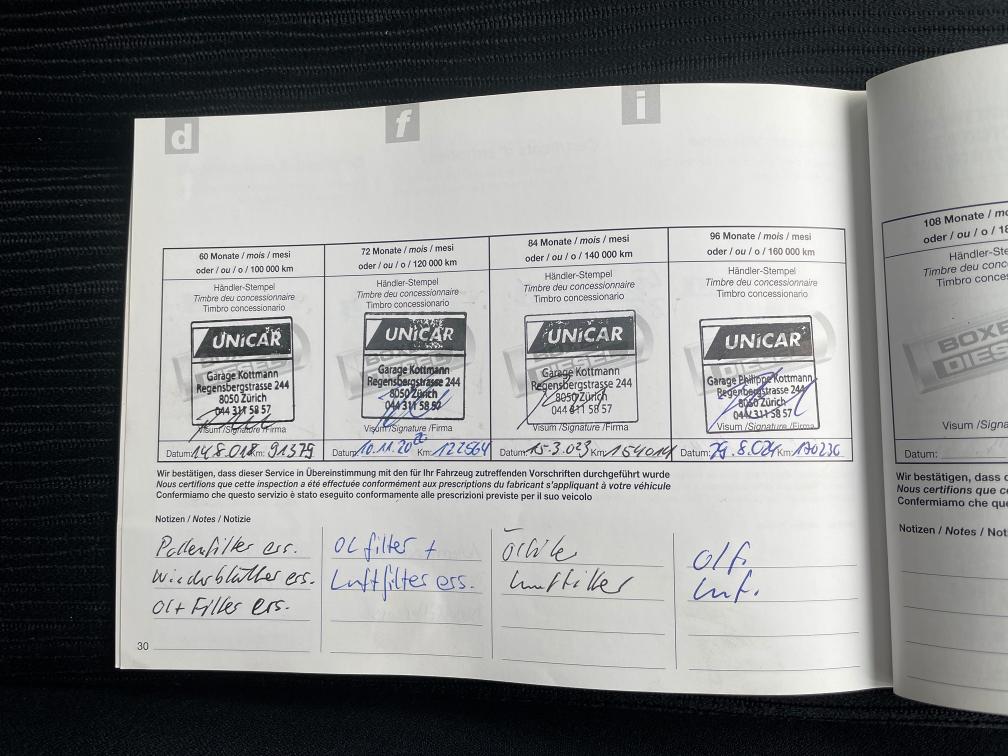 d
f
i
60 Monate / mois / mesi
oder / ou / o / 100 000 km
Händler-Stempel
Timbre deu concessionnaire
Timbro concessionario
UNiCAR
Garage Kottmann
Regensbergstrasse 244
8050 Zürich
044 311 58 57
Visum /Signature /Firma
Datum: 14.8.018 Km: 91375
72 Monate / mois / mesi
oder / ou / o / 120 000 km
Händler-Stempel
Timbre deu concessionnaire
Timbro concessionario
UNiCAR
Garage Kottmann
Regensbergstrasse 244
8050 Zürich
044 311 58 57
Visum /Signature /Firma
Datum: 10.11.2020 Km: 122564
84 Monate / mois / mesi
oder / ou / o / 140 000 km
Händler-Stempel
Timbre deu concessionnaire
Timbro concessionario
UNiCAR
Garage Kottmann
Regensbergstrasse 244
8050 Zürich
044 311 58 57
Visum /Signature /Firma
Datum: 15-3.023 Km:
96 Monate / mois / mesi
oder / ou / o / 160 000 km
Händler-Stempel
Timbre deu concessionnaire
Timbro concessionario
UNiCAR
Garage Philippe Kottmann
Regensbergstrasse 244
8050 Zürich
044 311 58 57
Visum /Signature /Firma
Datum: 29.8.024 Km: 170236
Wir bestätigen, dass dieser Service in Übereinstimmung mit den für Ihr Fahrzeug zutreffenden Vorschriften durchgeführt wurde
Nous certifions que cette inspection a été effectuée conformément aux prescriptions du fabricant s'appliquant à votre véhicule
Confermiamo che questo servizio è stato eseguito conformemente alle prescrizioni previste per il suo veicolo
Notizen / Notes / Notizie
Pollenfilter ers.
ers.
Öl + Filter ers.
Öl filter +
Luftfilter ers.
Luftfilter
Ölf.
Luf.
30
108 Monate /
oder / ou / o /
Händler-
Timbre deu
Timbro
BOX
DIESEL
Visum /
Datum:
Wir bestätigen, dass
Nous certifions que
Confermiamo che
Notizen / Notes /